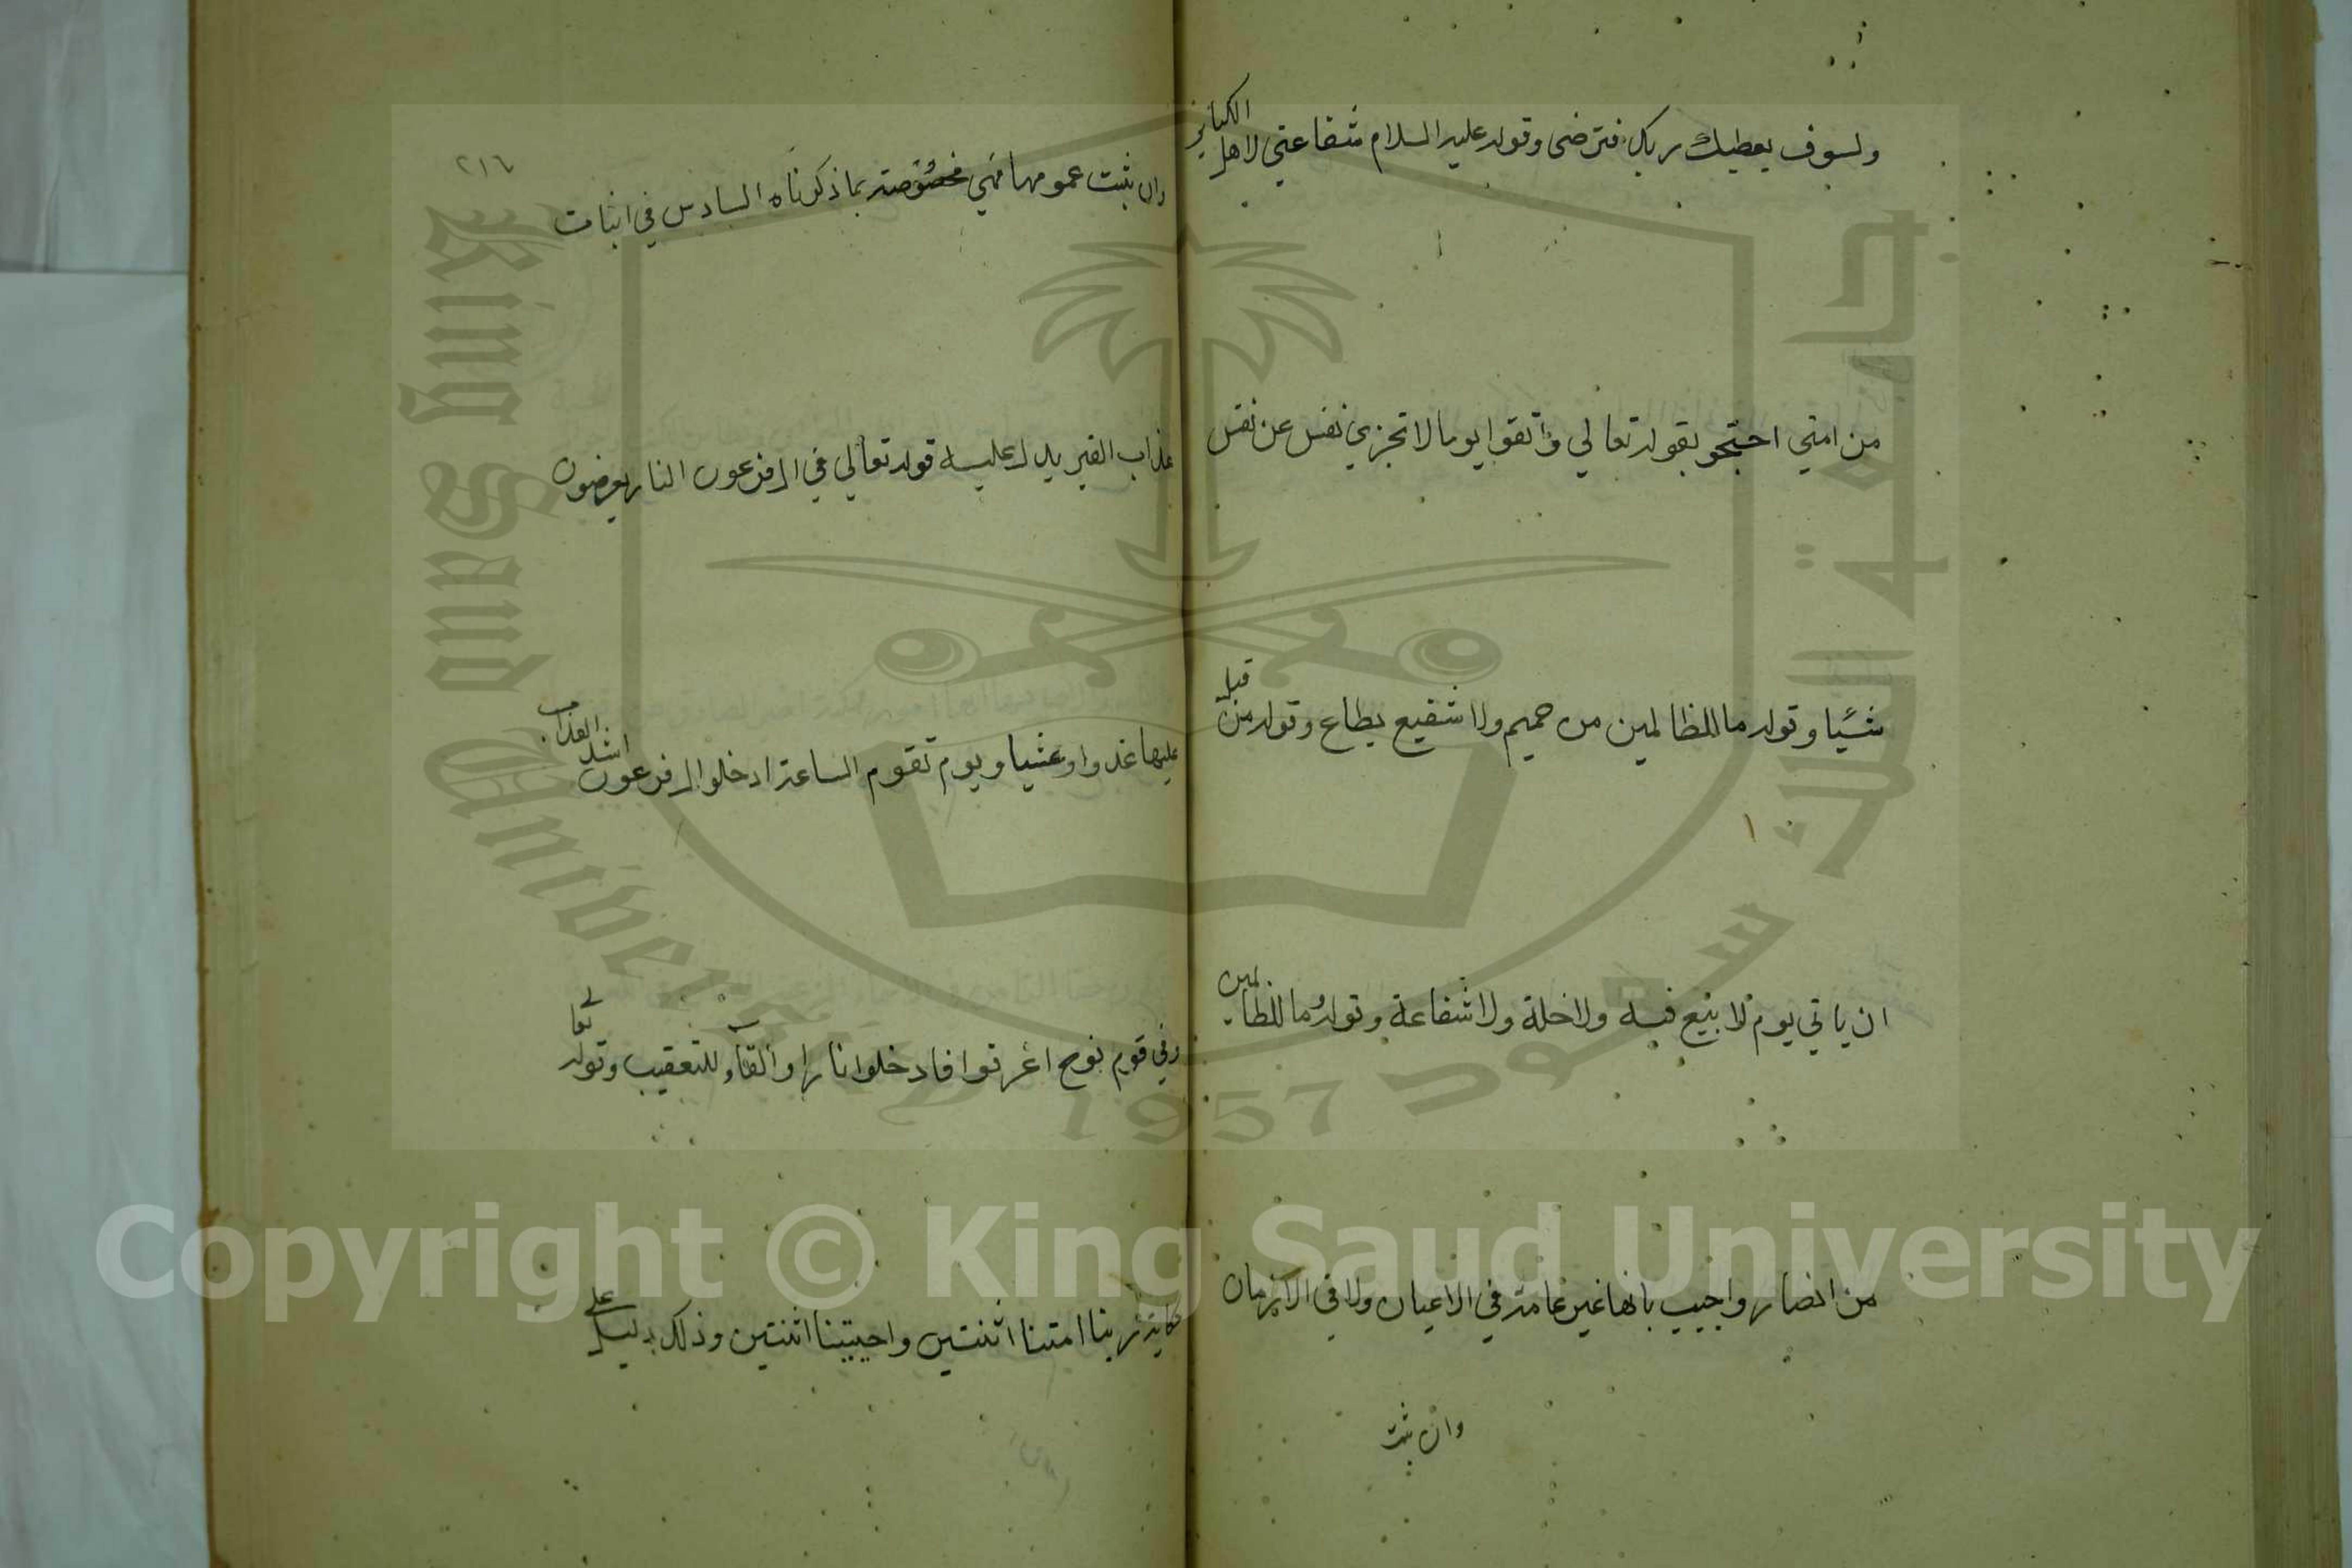 ولسوف يعطيك ربك فترضى وقوله عليه السلام شفاعتي لاهل الكبائر
من امتي احتجو بقوله تعالي واتقوا يوما لا تجزي نفس عن نفس
شئيا وقوله ما للظالمين من حميم ولا شفيع يطاع وقوله من قبل
ان ياتي يوم لا بيع فيه ولا خلة ولا شفاعة وقوله وما للظالمين
من انصار واجيب بانها غير عامة في الاعيان ولا في الازمان
وان ثبت
٢١٦
وان ثبت عمومها فهي مخصوصة بما ذكرناه السادس في اثبات
عذاب القبر يدل عليه قوله تعالي في ال فرعون النار يعرضون
عليها غدوا وعشيا ويوم تقوم الساعة ادخلوا ال فرعون اشد العذاب
وفي قوم نوح اغرقوا فادخلوا نارا والفاء للتعقيب وقوله تعالى
حكاية ربنا امتنا اثنتين واحييتنا اثنتين وذلك دليل على
جامعة الملك سعود
King Saud University
1957
Copyright © King Saud University